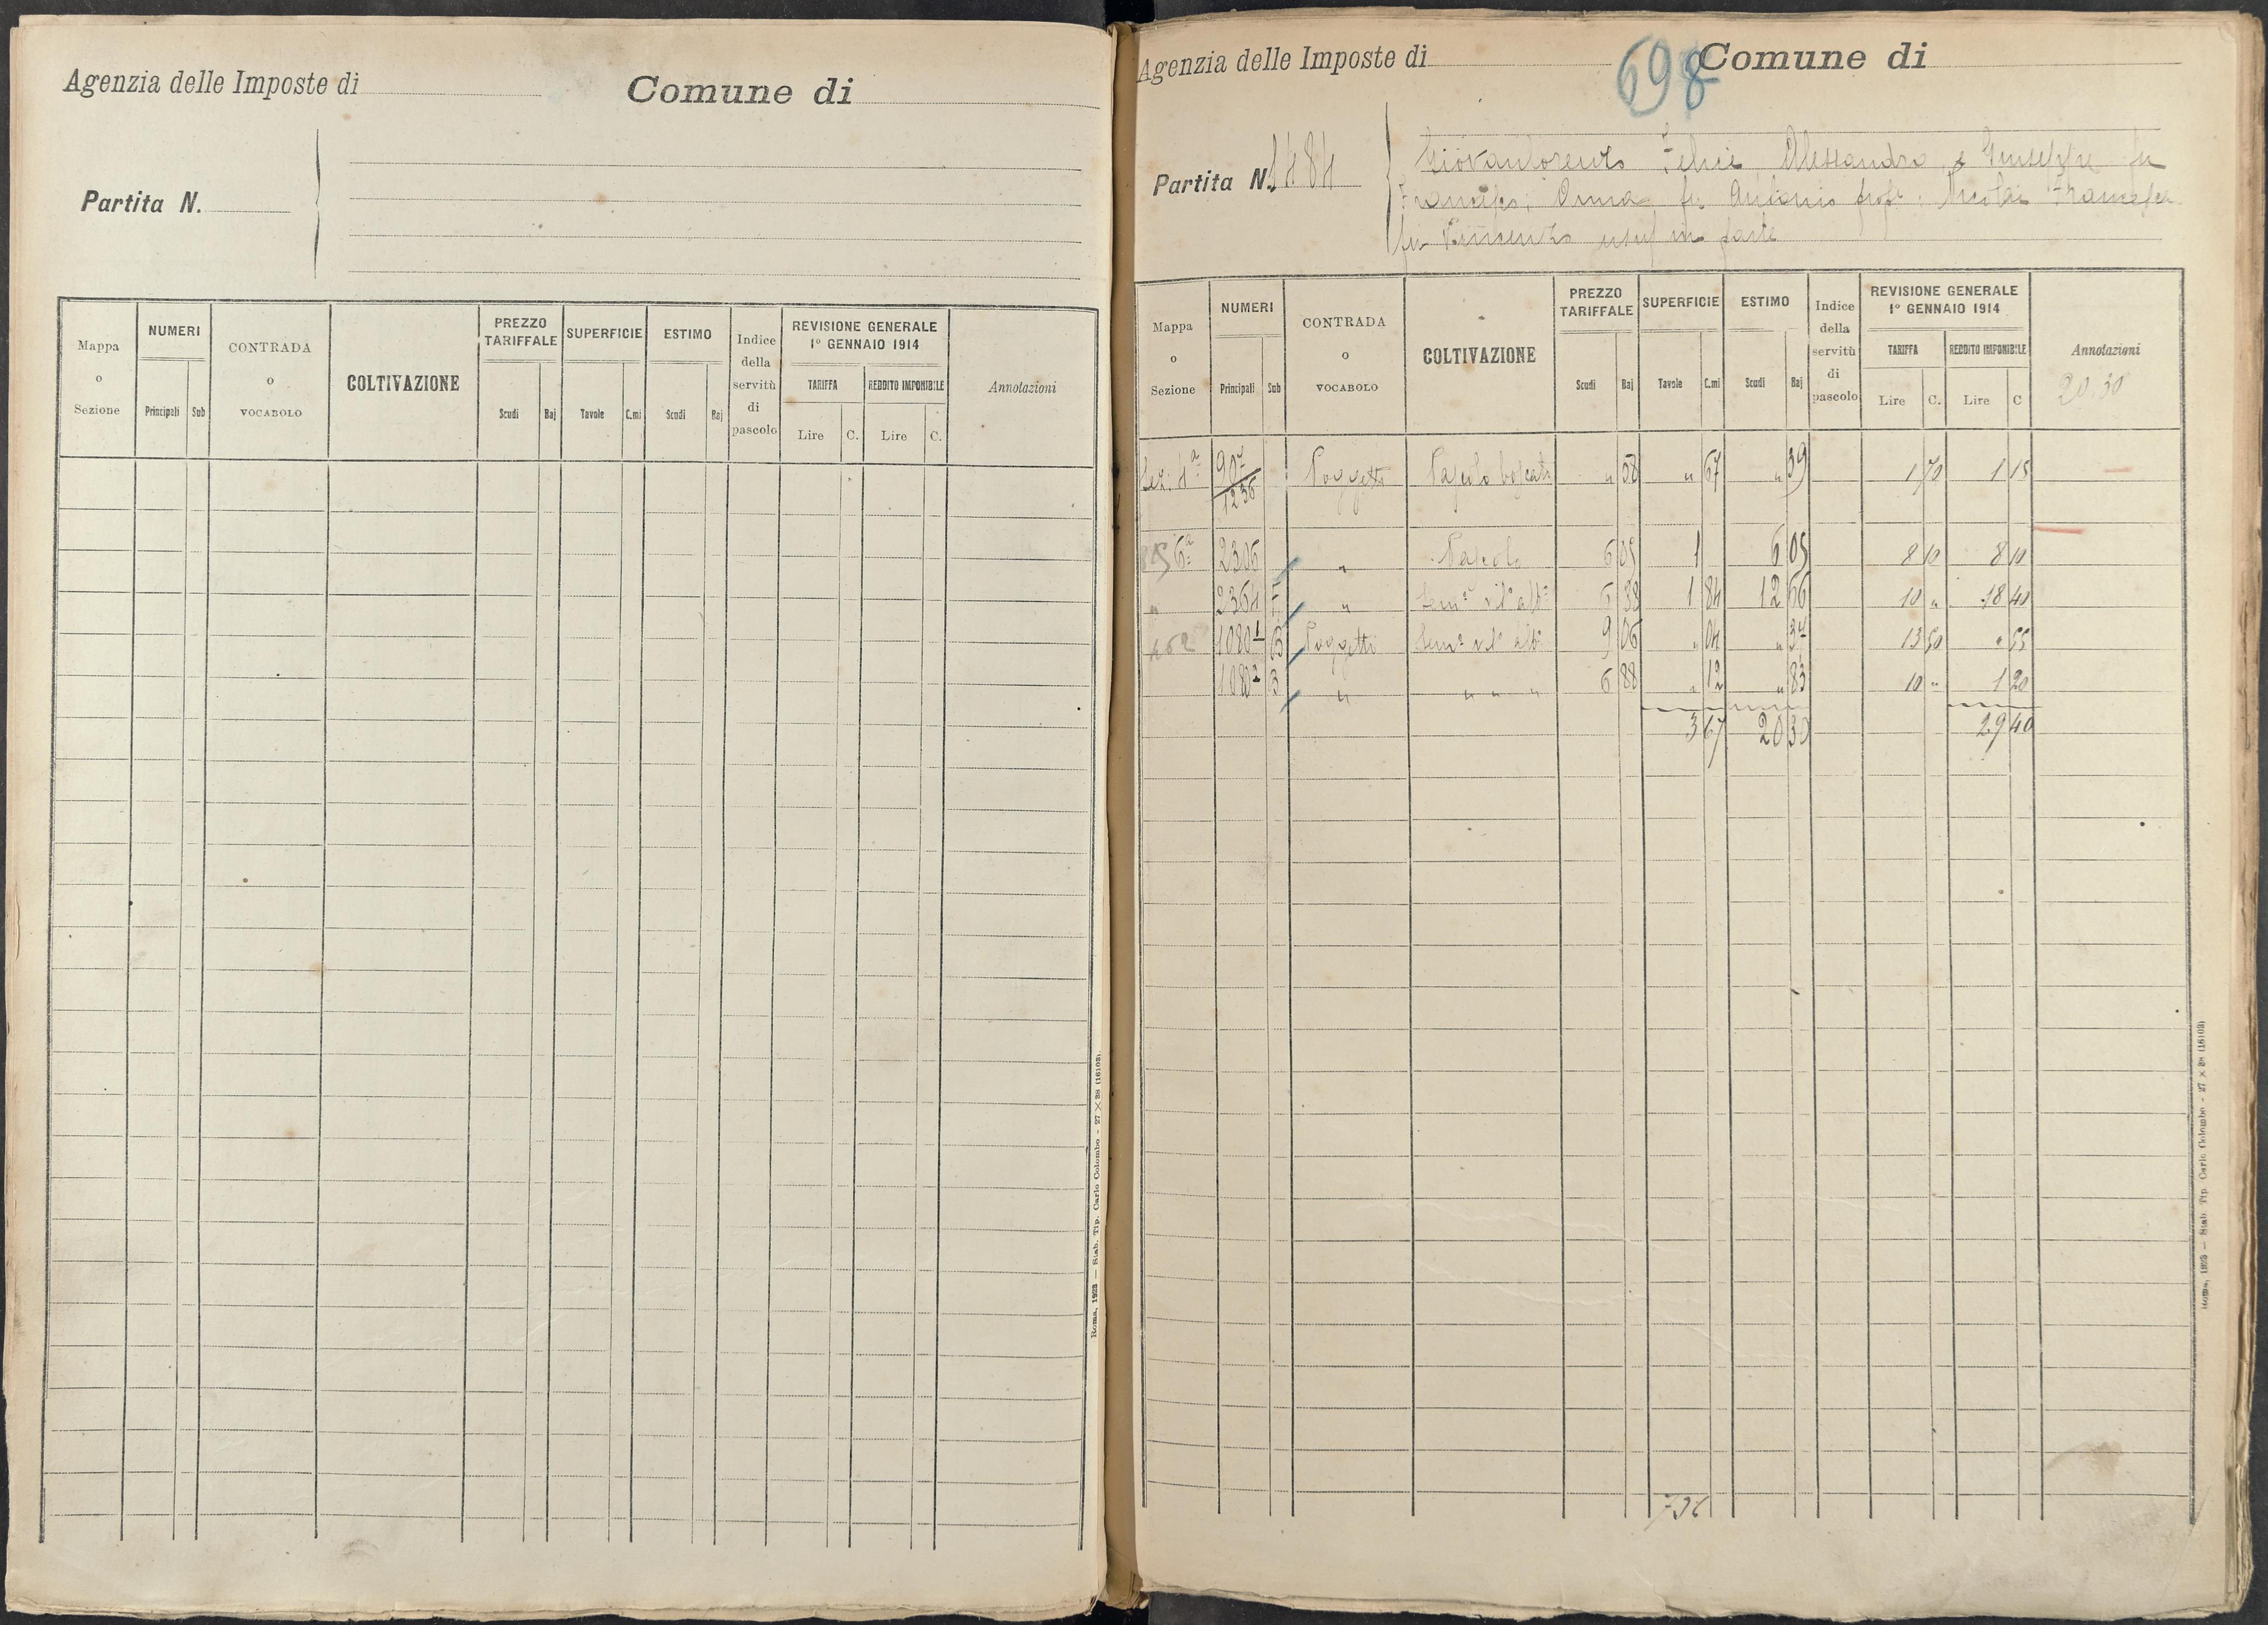 Agenzia delle Imposte di
Comune di
Partita N.
Mappa o Sezione
NUMERI
Principali Sub
CONTRADA o VOCABOLO
COLTIVAZIONE
PREZZO TARIFFALE
Scudi Baj
SUPERFICIE
Tavole C.mi
ESTIMO
Scudi Baj
Indice della servitù di pascolo
REVISIONE GENERALE
1º GENNAIO 1914
TARIFFA REDDITO IMPONIBILE
Lire C. Lire C.
Annotazioni
Roma, 1923 — Stab. Tip. Carlo Colombo - 27 × 38 (16103)
Agenzia delle Imposte di
698
Comune di
Partita N. 1484
Giovanlorenzo Felice, Alessandro e Giuseppe fu
Francesco; Anna fu Antonio prop. Nicolai Francesca
fu Vincenzo usuf in parte
Mappa o Sezione
NUMERI
Principali Sub
CONTRADA o VOCABOLO
COLTIVAZIONE
PREZZO TARIFFALE
Scudi Baj
SUPERFICIE
Tavole C.mi
ESTIMO
Scudi Baj
Indice della servitù di pascolo
REVISIONE GENERALE
1º GENNAIO 1914
TARIFFA REDDITO IMPONIBILE
Lire C. Lire C
Annotazioni
20.30
Sez. 4ª 907/1236 Poggetto Pascolo boscato " 58 " 67 " 39 1 70 1 15
6ª 2306 " Pascolo 6 05 1 6 05 8 10 8 10
" 2364 " Semº vitº albº 6 88 1 84 12 66 10 " 18 40
1080 1 Poggetti Semº vitº albº 9 06 " 04 " 37 13 50 " 55
1080 2 3 " " " " 6 88 " 12 " 83 10 " 1 20
3 67 20 30 29 40
Roma, 1923 — Stab. Tip. Carlo Colombo - 27 × 38 (16103)